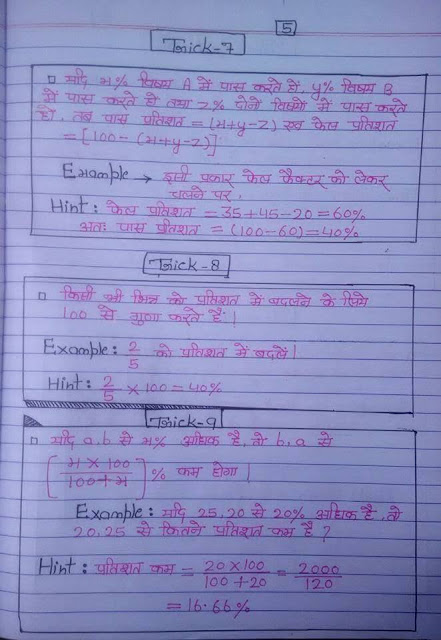 5
Trick-7
यदि x% विषय A में पास करते हों, y% विषय B
में पास करते हों तथा z% दोनों विषयों में पास करते
हों, तब पास प्रतिशत = (x+y-z) एवं फेल प्रतिशत
= [100 - (x+y-z)]
Example → इसी प्रकार फेल फैक्टर को लेकर
चलने पर,
Hint : फेल प्रतिशत = 35+45-20 = 60%
अतः पास प्रतिशत = (100-60) = 40%
Trick-8
किसी भी भिन्न को प्रतिशत में बदलने के लिये
100 से गुणा करते हैं।
Example : 2/5 को प्रतिशत में बदलें।
Hint : 2/5 × 100 = 40%
Trick-9
यदि a, b से x% अधिक है, तो b, a से
[x × 100 / 100 + x] % कम होगा।
Example : यदि 25, 20 से 20% अधिक है, तो
20, 25 से कितने प्रतिशत कम है ?
Hint : प्रतिशत कम = 20×100 / 100+20 = 2000 / 120
= 16.66%